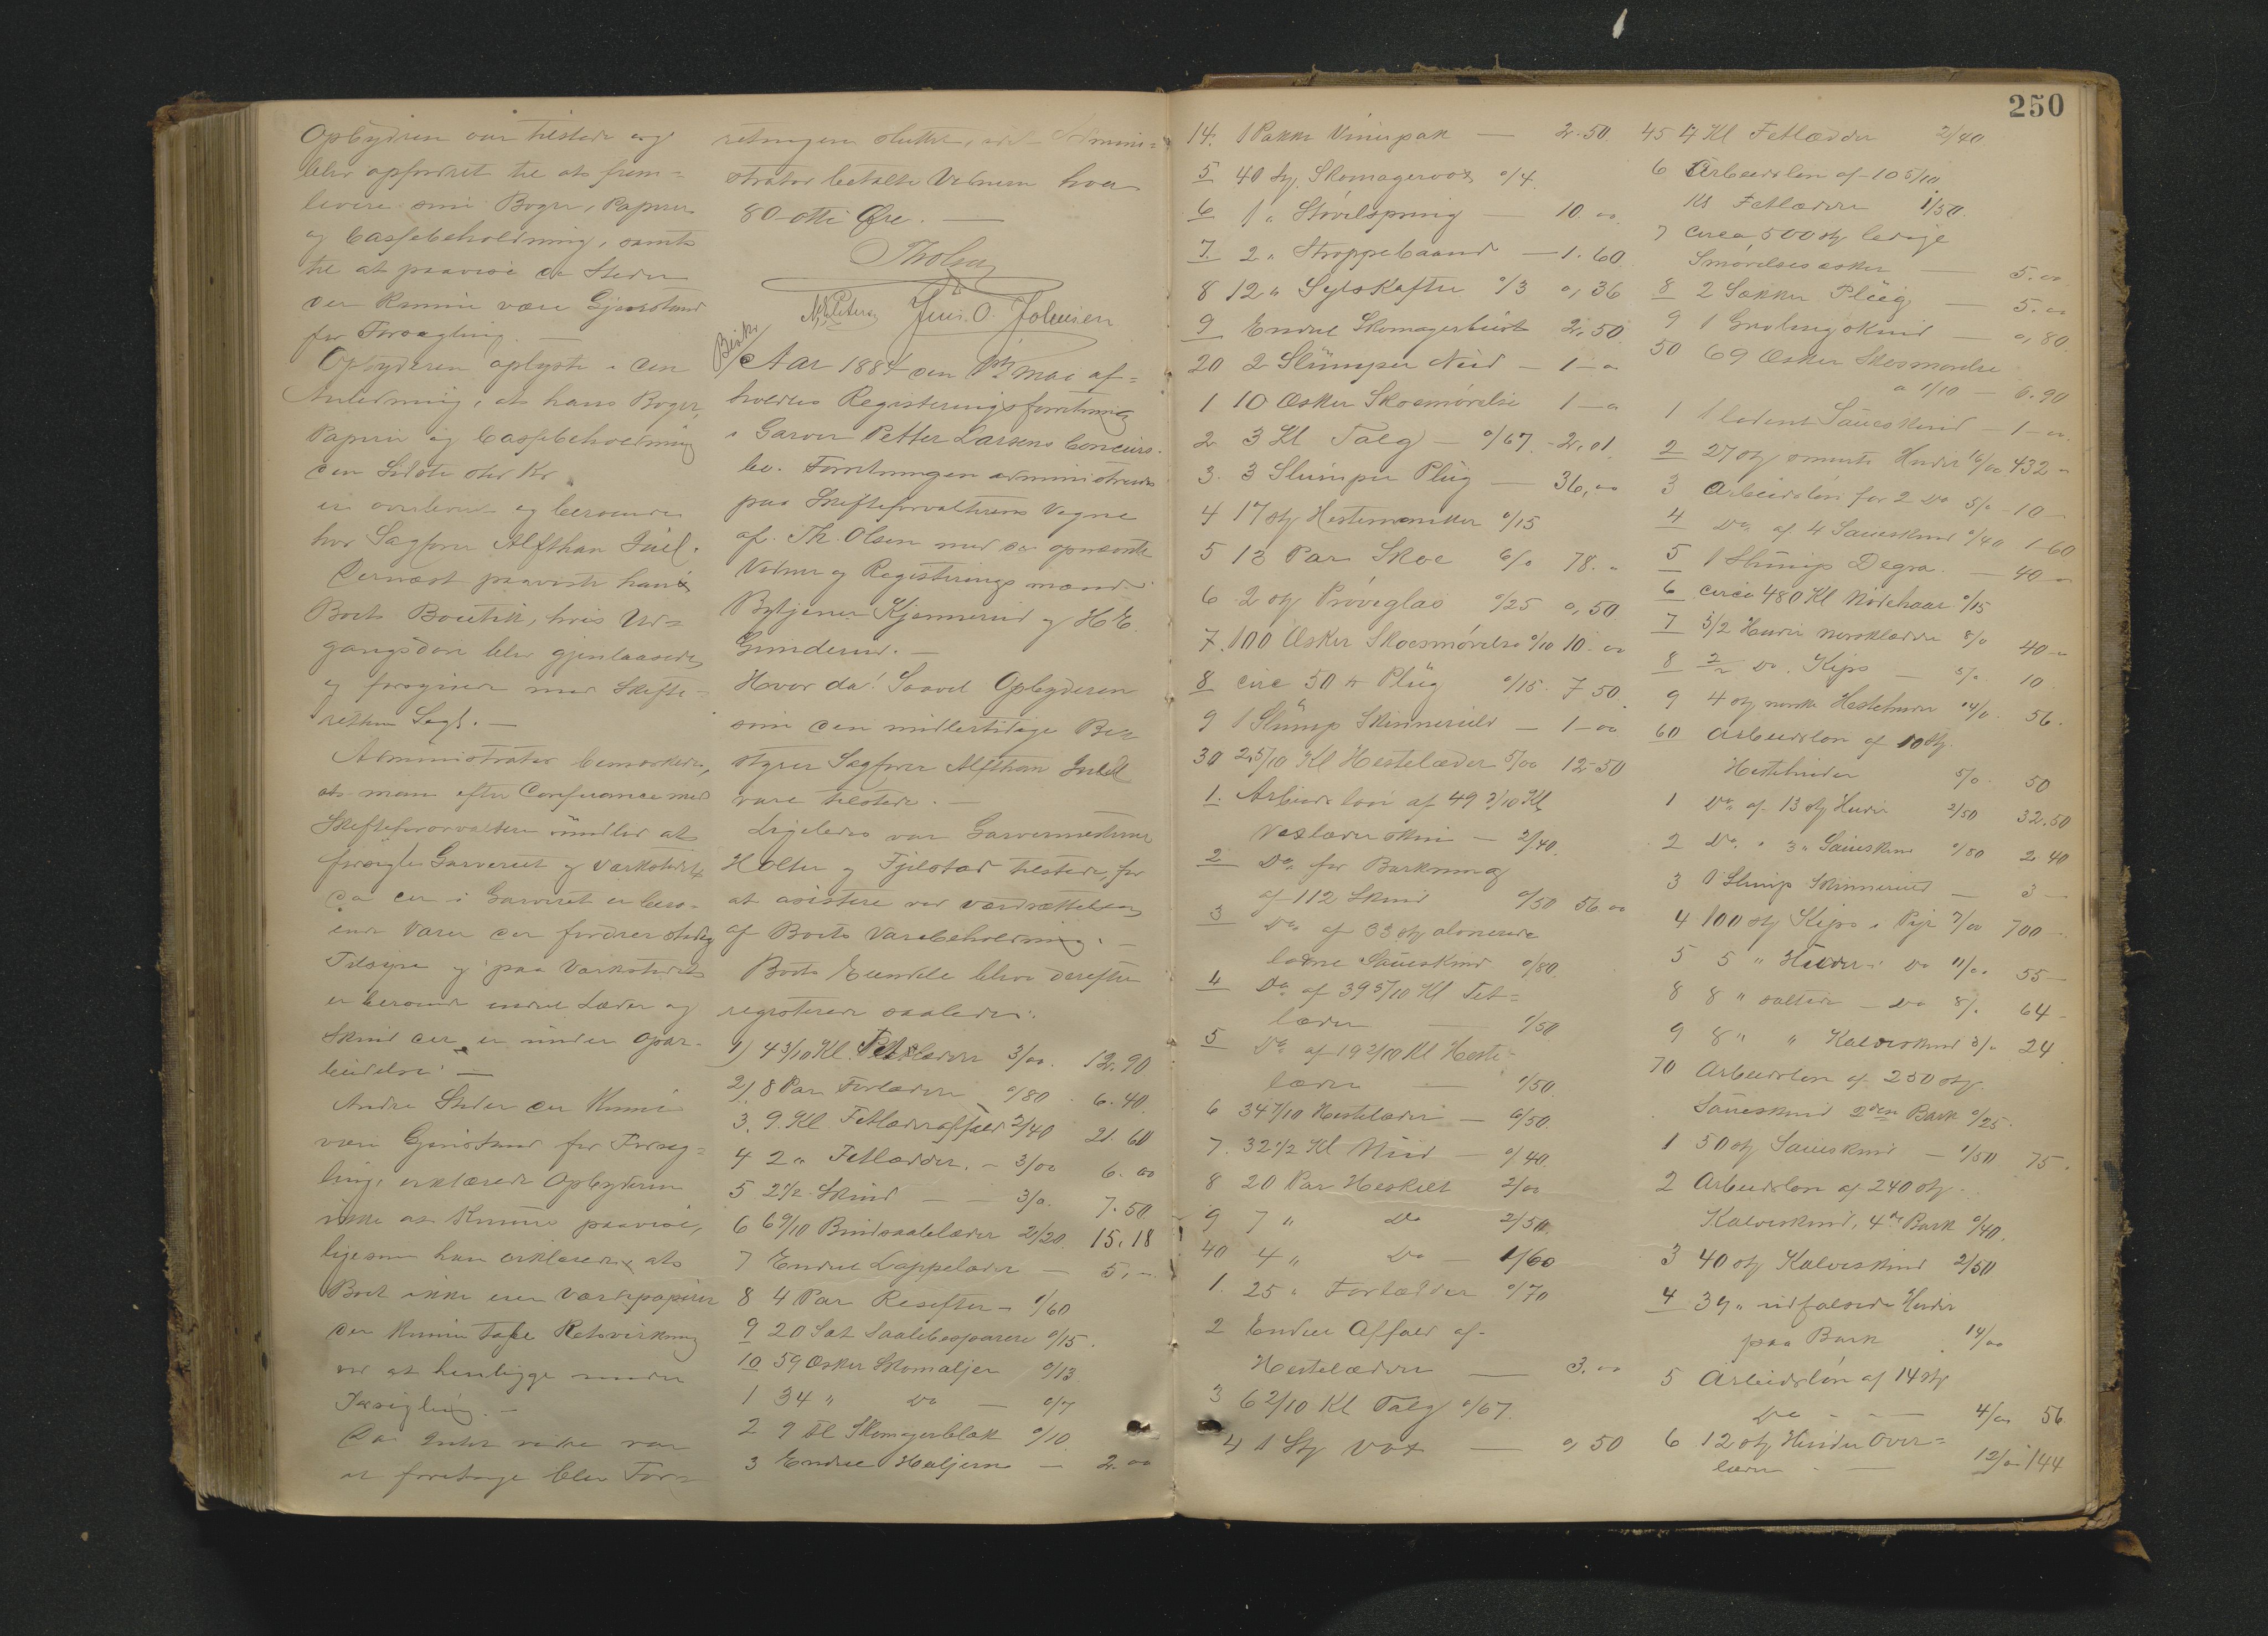 Opbyderen var tilstede og
blev opfordret til at frem=
levere sine Bøger, Papirer
og Cassebeholdning, samt
til at paavise de Steder
der kunne være Gjenstand
for Forsegling.
Opbyderen oplyste i den
Anledning, at hans Bøger,
Papirer og Cassebeholdning
den Sidste stor Kr
er overleveret og beroende
hos Sagfører Alfthan Juell.
Dernæst paaviste han
Boets Boutik, hvis Ud=
gangsdøre blev gjenlaasede
og forseglede med Skifte=
rettens Segl. —
Administrator bemærkede,
at man efter Conferance med
Skifteforvalteren undlod at
forsegle Garveriet og Værkstedet
da der i Garveriet er bero=
ende Varer der fordrer stadig
Tilsyn og paa Værkstedet
er beroende endel Læder og
Skind der er under Opar=
beidelse. —
Andre Steder der kunne
være Gjenstand for Forseg=
ling, erklærede Opbyderen
ikke at kunne paavise,
ligesom han erklærede, at
Boet ikke eier Værdipapirer
der kunne tabe Retsvirkning
ved at henligge under
Forsegling. —
Da Intet videre var
at foretage blev For=
retningen sluttet, idet Admini=
strator betalte Vidnerne hver
80 otti Øre. —
Th Olsen
N. Petersen Jens. O. Johnsen
Aar 1884 den 1ste Mai af=
holdtes Registreringsforretning
i Garver Petter Larsens Concurs
bo. Forretningen administreredes
paa Skifteforvalterens Vegne
af Th. Olsen med de opnævnte
Vidner og Registreringsmænd
Bytjener Kjennerud og H. E.
Grinderud. —
Hvor da! Saavel Opbyderen
som den midlertidige Be=
styrer Sagfører Alfthan Juell
vare tilstede. —
Ligeledes var Garvermestrene
Holter og Fjelstad tilstede, for
at asistere ved værdsættelsen
af Boets Varebeholdning. —
Boets Eiendele blev derefter
registrerede saaledes:
1) 4 3/10 Kl. Fetlæder 3/00. 12.90
2) 8 Par Forlæder 0/80 6.40
3. 9. Kl. Fetlæderaffald 2/40 21.60
4 2 " Fetlæder. - 3/00 6.00
5 2 1/2 Skind — 3/0. 7.50
6 6 9/10 Bindsaalelæder 2/20 15.18
7 Endel Lappelæder — 5.-
8 4 Par Resefter - 1/60
9 20 Sæt Saalebesparere 0/15.
10 59 Æsker Skomaljer 0/13
1 34 " Do — 0/7
2 9 Fl Skomagerblæk 0/10
3 Endel Hæljern — 2.00
250
14. 1 Pakke Vinerpap — 2.50
5 40 stg. Skomagervox 0/4.
6 1 " Støvelspring — 10 00
7. 2 " Stroppebaand — 1.60
8 12 " Sylskafter 0/3 0,36
9 Endel Skomagerbust 2,50
20 2 Slumper Nud — 1 —
1 10 Æsker Skosmørelse 1 —
2 3 Kl Talg — 0/67 - 2,01
3. 3 Slumper Plug — 36,00
4 17 stg Hestemanker 0/15
5 13 Par Skoe 6/0 78. "
6 2 stg Prøveglas 0/25 0,50
7. 100 Æsker Skoesmørelse 0/10 10.00
8 circ 50 Plug 0/15. 7 50
9 1 Slump Skinneruld — 1 — 00
30 2,5/10 Kl Hestelæder 5/00 12-50
1. Arbeidsløn af 49 3/10 Kl
Voxlæderskin — 2/40
2 Do for Barkning
af 112 Skind 0/50 56.00
3 Do af 33 stg alonerede
lodne Saueskind 0/80
4 Do af 39 5/10 Kl Fet=
læder — 1/50
5 Do af 19 2/10 Kl Heste=
læder — 1/50
6 34 7/10 Hestelæder — 6/50.
7. 32 1/2 Kl Nud — 0/40.
8 20 Par Heskelt 2/00
9 7 " Do 2/50.
40 4 " Do — 1/60
1. 25 " Forlæder 0/70
2 Endel Affald af
Hestelæder — 3.00
3 6 2/10 Kl Talg 0/67.
4 1 Stg Vox — 0,50
45 4 Kl Fetlæder 2/40
6 Arbeidsløn af 10 5/10
Kl Fetlæder 1/50.
7 circa 500 stg ledige
Smørelsesæsker — 5.00
8 2 Sækker Plug — 5.00
9 1 Grævlingskind — 0,80
50 69 Æsker Skosmørelse
a 1/10 — 6.90
1 1 lodent Saueskind — 1 —
2 27 stg smurte Huder 16/00 432 -
3 Arbeidsløn for 2 Do 5/0 - 10 -
4 Do af 4 Saueskind 0/40 1-60
5 1 Slump Degra. — 40 -
6 circa 480 Kl Nødehaar 0/15
7 5/2 Huder norsklæder 8/0 40 -
8 2/2 Do. Kips — 5/0 10
9 4 stg norske Hestehuder 14/0. 56.
60 Arbeidsløn af 10 stg.
Hestehuder 5/0. 50
1 Do af 13 stg Huder 2/50 32.50
2 Do. " 3 " Saueskind 0/80 2 40
3 1 Slump Skinneruld — 3 —
4 100 stg Kips i Pyr 7/00 700 —
5 5 " Huder i Do 11/00 55 —
8 8 " saltede — Do 8/. 64 -
9 8 " " Kalveskind 3/0 24
70 Arbeidsløn af 250 stg.
Saueskind 2den Bark 0/25.
1 50 stg Saueskind — 1/50 75.
2 Arbeidsløn af 240 stg.
Kalveskind, 4de Bark 0/40.
3 40 stg Kalveskind 2/50
4 39 " udfalsede Huder
paa Bark 14/00
5 Arbeidsløn af 14 stg
Do — 4/00 56.
6 12 stg Huder Over=
læder — 12/00 144